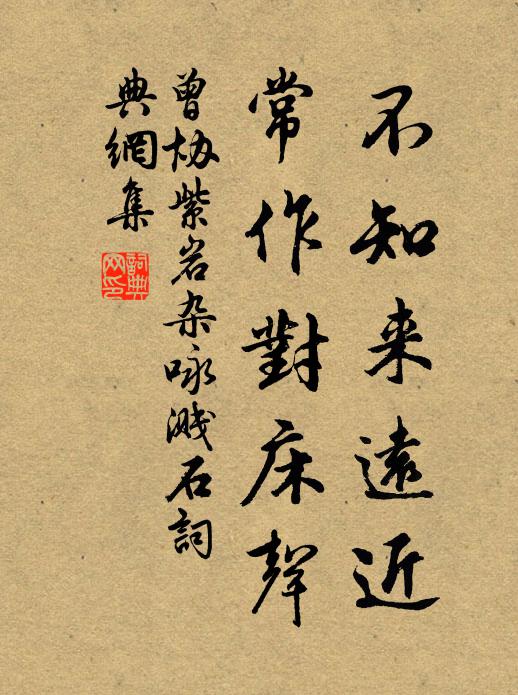 不知来遠近
常作對床聲
曾協紫岩杂咏溅石詞
典網集
詞典網印